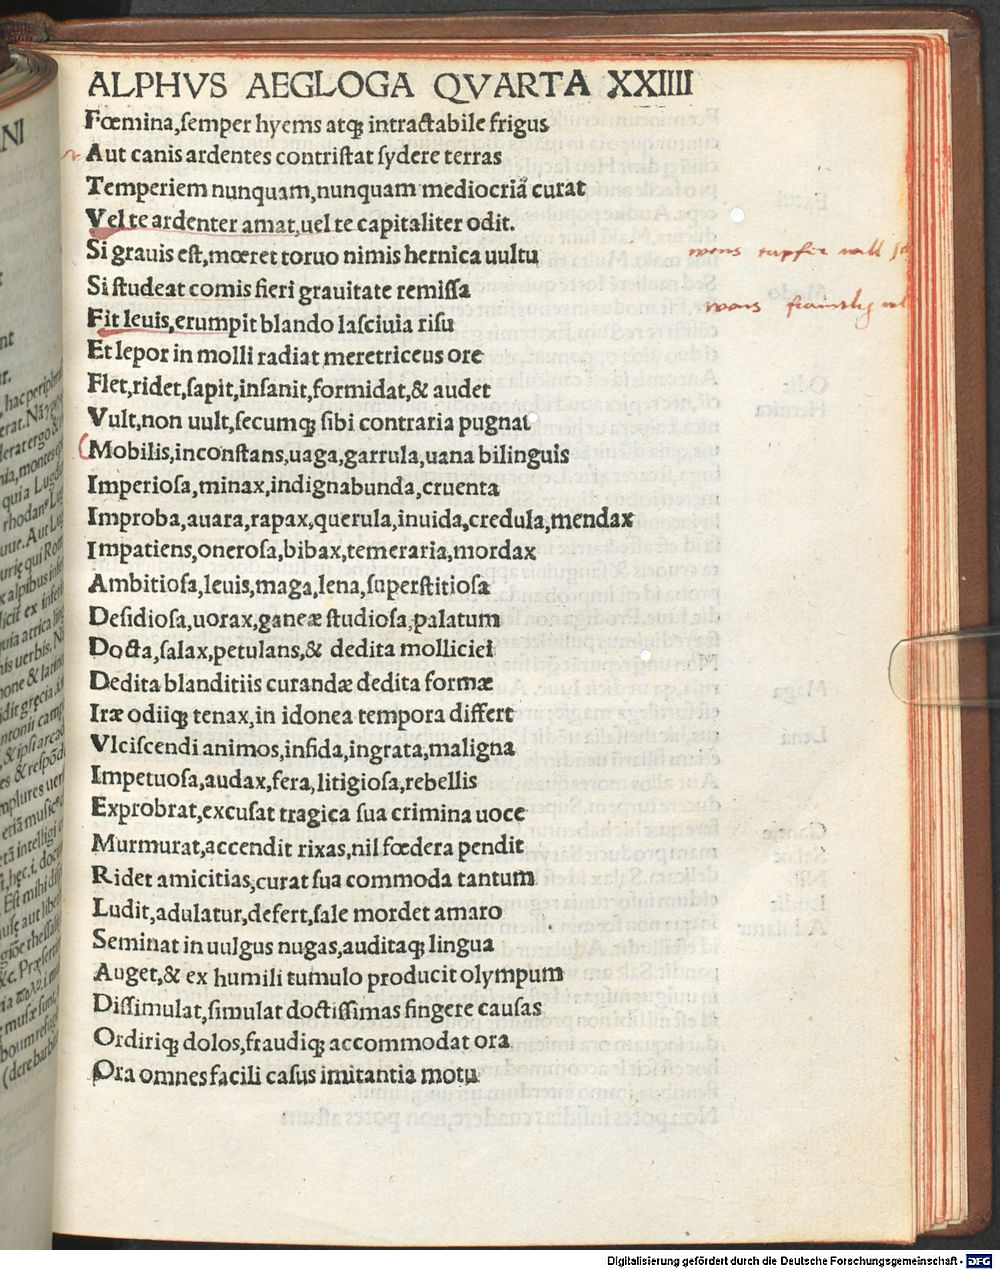 ALPHVS AEGLOGA QVARTA XXIIII
Fœmina,ſemper hyems atqꝫ intractabile frigus
Aut canis ardentes contriſtat ſydere terras
Temperiem nunquam,nunquam mediocriã curat
Vel te ardenter amat,uel te capitaliter odit.
Si grauis eſt,mœret toruo nimis hernica uultu
Si ſtudeat comis fieri grauitate remiſſa
Fit leuis,erumpit blando laſciuia riſu
Et lepor in molli radiat meretriceus ore
Flet,ridet,ſapit,inſanit,formidat,& audet
Vult,non uult,ſecumqꝫ ſibi contraria pugnat
Mobilis,inconſtans,uaga,garrula,uana bilinguis
Imperioſa,minax,indignabunda,cruenta
Improba,auara,rapax,querula,inuida,credula,mendax
Impatiens,oneroſa,bibax,temeraria,mordax
Ambitioſa,leuis,maga,lena,ſuperſtitioſa
Deſidioſa,uorax,ganeæ ſtudioſa,palatum
Docta,ſalax,petulans,& dedita molliciei
Dedita blanditiis curandæ dedita formæ
Iræ odiiqꝫ tenax,in idonea tempora differt
Vlciſcendi animos,infida,ingrata,maligna
Impetuoſa,audax,fera,litigioſa,rebellis
Exprobrat,excuſat tragica ſua crimina uoce
Murmurat,accendit rixas,nil fœdera pendit
Ridet amicitias,curat ſua commoda tantum
Ludit,adulatur,defert,ſale mordet amaro
Seminat in uulgus nugas,auditaqꝫ lingua
Auget,& ex humili tumulo producit olympum
Diſſimulat,ſimulat doctiſſimas fingere cauſas
Ordiriqꝫ dolos,fraudiqꝫ accommodat ora
Ora omnes facili caſus imitantia motu
Digitalisierung gefördert durch die Deutsche Forschungsgemeinschaft - DFG